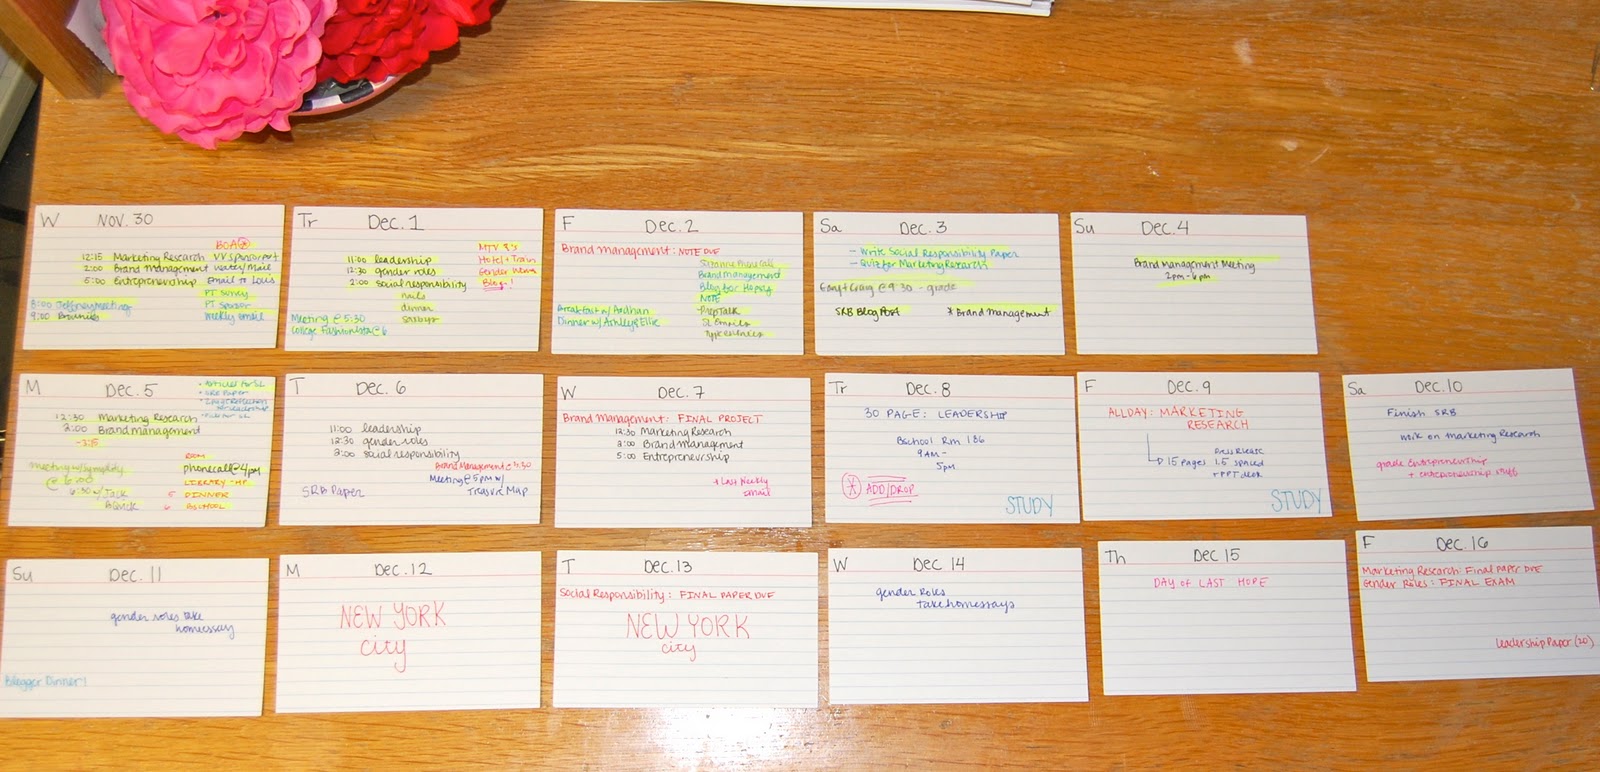 W NOV. 30
BOA
12:15 Marketing Research
2:00 Brand Management
5:00 Entrepreneurship Email to Louis
PT Survey
8:00 Jeffrey Meeting PT Sponsor
9:00 Brownies Weekly email
Tr Dec. 1
Hotel + Train
11:00 leadership
12:30 gender roles
Blog!
2:00 social responsibility
nails
dinner
Meeting @ 5:30
College Fashionista @ 6
F Dec. 2
Brand Management: NOTE DUE
Brand Management
NOTE
Breakfast w/
Dinner w/ Ashley & Ellie
SL Emails
Sa Dec. 3
- Write Social Responsibility Paper
- Quiz for Marketing Research
@ 9:30 - grade
SRB Blog Post * Brand Management
Su Dec. 4
Brand Management Meeting
2pm - 6pm
M Dec. 5
12:30 Marketing Research
2:00 Brand Management
- 3:15
phonecall @ 4pm
@ 6:00
LIBRARY - HP
6:30 w/ Jack
5 DINNER
6 BSCHOOL
T Dec. 6
11:00 leadership
12:30 gender roles
2:00 social responsibility
Brand Management @ 4:30
Meeting @ 5pm w/
Treasure Map
SRB Paper
W Dec. 7
Brand Management: FINAL PROJECT
12:30 Marketing Research
2:00 Brand Management
5:00 Entrepreneurship
+ Last Weekly
Email
Tr Dec. 8
30 PAGE: LEADERSHIP
Bschool Rm 186
9AM -
5pm
ADD/DROP
STUDY
F Dec. 9
ALLDAY: MARKETING
RESEARCH
Press Release
15 pages 1.5 spaced
+ PPT deck
STUDY
Sa Dec. 10
Finish SRB
work on Marketing Research
grade Entrepreneurship
+ entrepreneurship stuff
Su Dec. 11
gender roles take
home essay
Blogger Dinner!
M Dec. 12
NEW YORK
city
T Dec. 13
Social Responsibility: FINAL PAPER DUE
NEW YORK
city
W Dec 14
gender roles
take home essays
Th Dec 15
DAY OF LAST HOPE
F Dec. 16
Marketing Research: Final PAPER DUE
Gender Roles: FINAL EXAM
Leadership Paper (20)